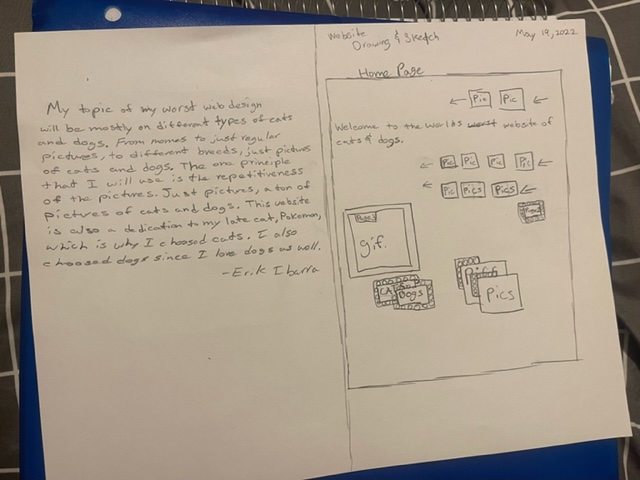 My topic of my worst web design
will be mostly on different types of cats
and dogs. From memes to just regular
pictures, to different breeds, just pictures
of cats and dogs. The one principle
that I will use is the repetitiveness
of the pictures. Just pictures, a ton of
pictures of cats and dogs. This website
is also a dedication to my late cat, Pokemon,
which is why I choosed cats. I also
choosed dogs since I love dogs as well.
-Erik Ibarra
Website
Drawing & Sketch
May 19, 2022
Home Page
Pic Pic
Welcome to the worlds worst website of
cats & dogs.
Pic Pic Pic Pic
Pic Pics Pics
gif.
Dogs
Pics